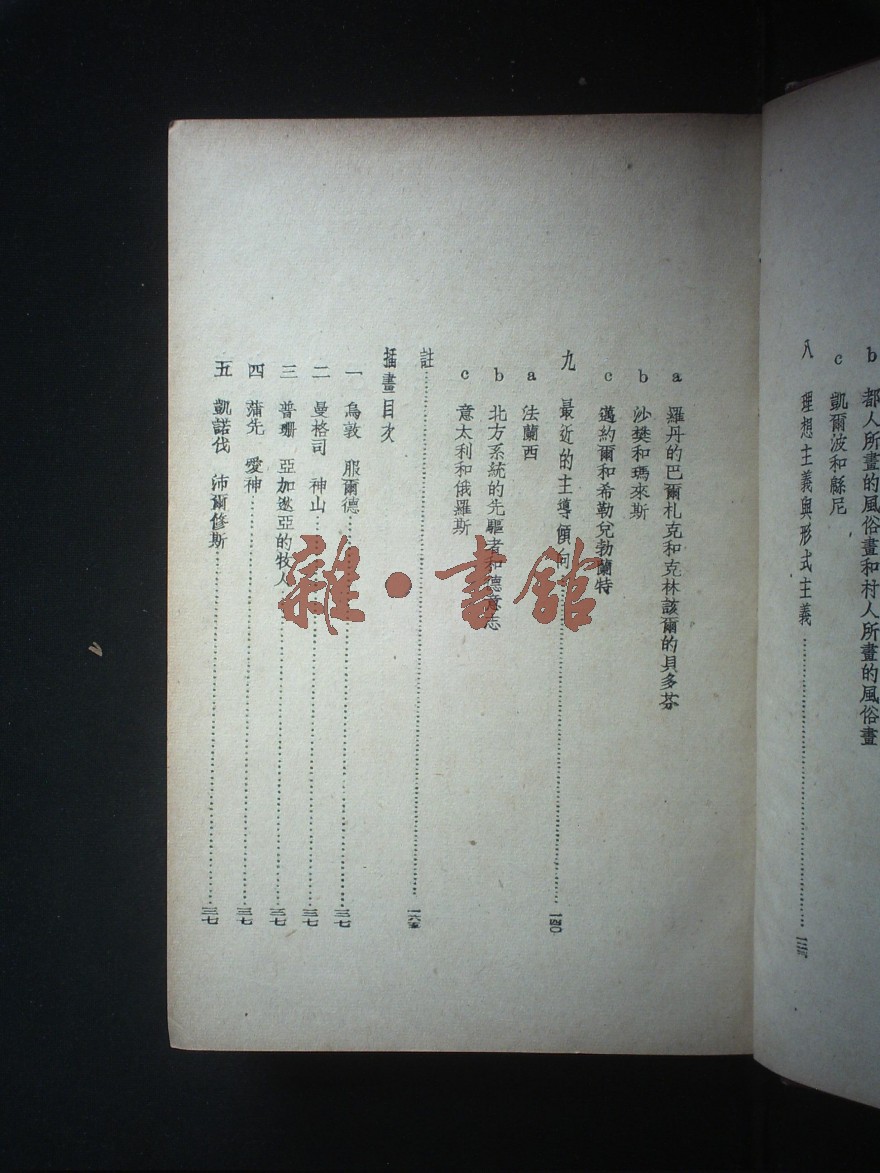 b 都人所畫的風俗畫和村人所畫的風俗畫
c 凱爾波和緜尼
八 理想主義與形式主義
a 羅丹的巴爾札克和克林該爾的貝多芬
b 沙樊和瑪來斯
c 邁約爾和希勒兌勃蘭特
九 最近的主導傾向 一四〇
a 法蘭西
b 北方系統的先驅者和德意志
c 意太利和俄羅斯
註
插畫目次
一 烏敦 服爾德 三七
二 曼格司 神山 三七
三 普珊 亞加逖亞的牧人 三七
四 蒲先 愛神 三七
五 凱諾伐 沛爾修斯 三七
雜·書館